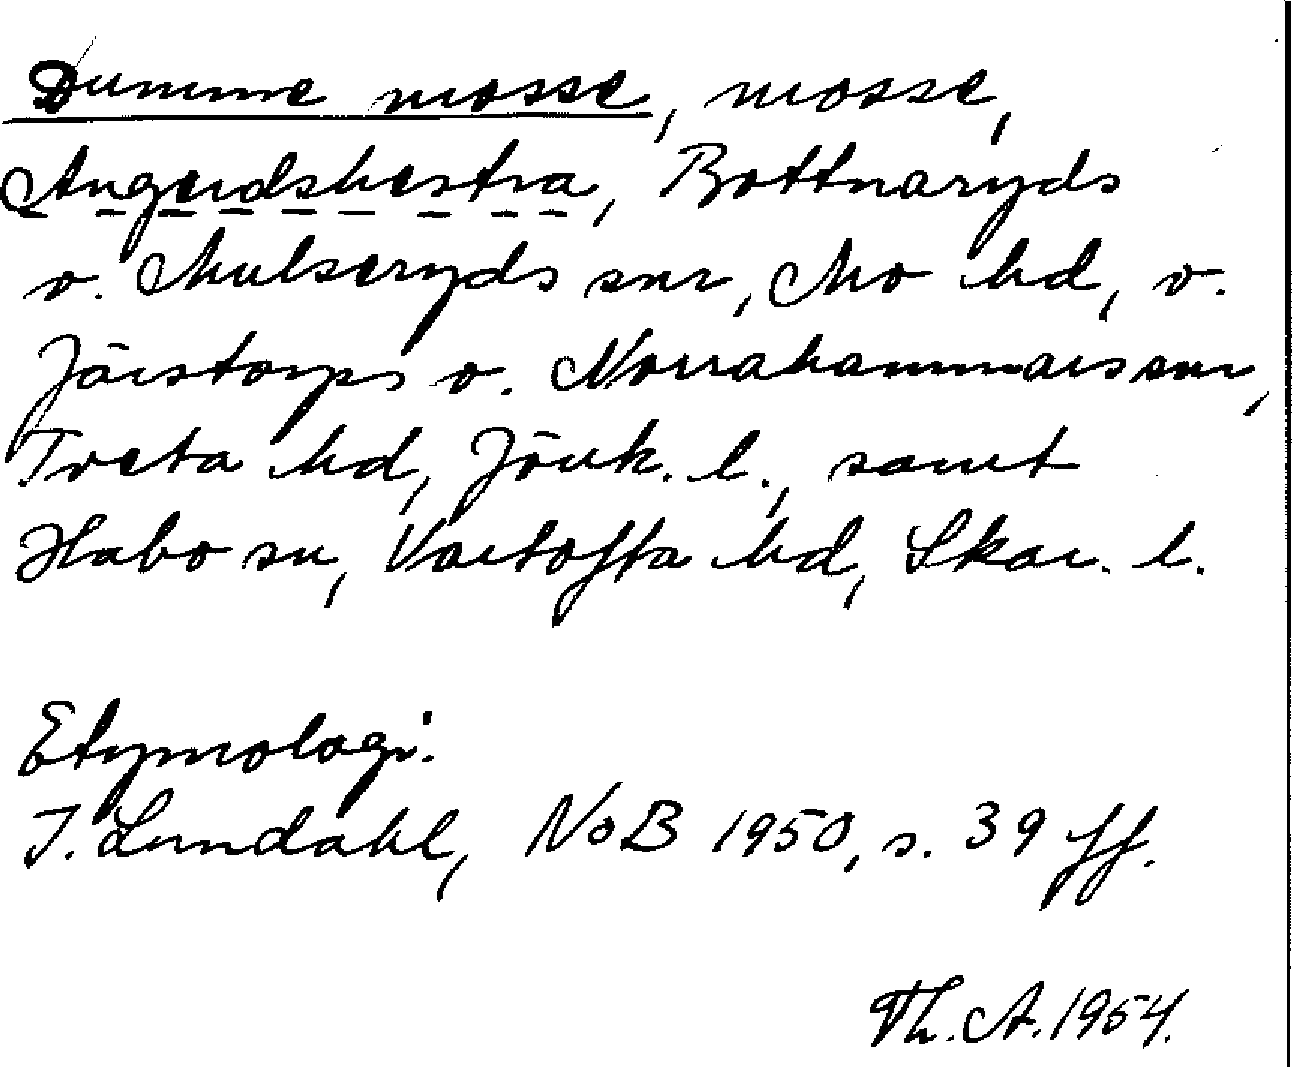 Dumme mosse, mosse,
Angerdshestra, Bottnaryds
o. Mulseryds snr, Mo hd, o.
Järstorps o. Norrahammars snr,
Tveta hd, Jönk. l., samt
Habo sn, Vartofta hd, Skar. l.
Etymologi.
I. Lundahl, NoB 1950, s. 39 ff.
Th. A. 1954.